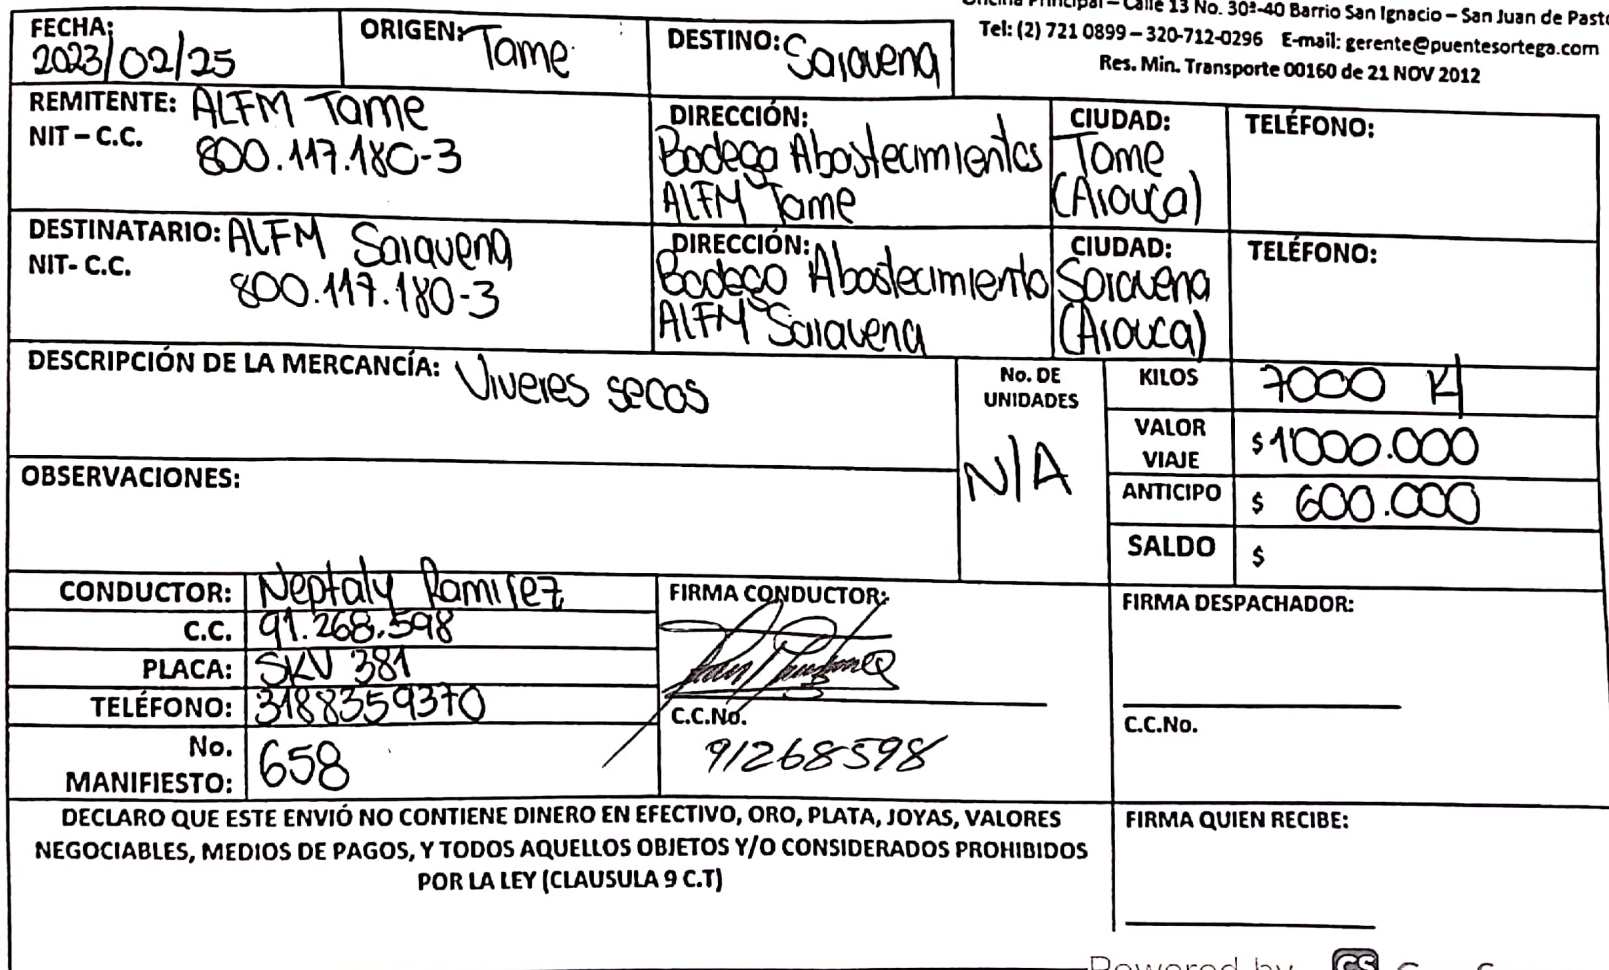 Oficina Principal – Calle 13 No. 30ª-40 Barrio San Ignacio – San Juan de Pasto
Tel: (2) 721 0899 – 320-712-0296 E-mail: gerente@puentesortega.com
Res. Min. Transporte 00160 de 21 NOV 2012
FECHA: 2023/02/25
ORIGEN: Tame
DESTINO: Saravena
REMITENTE: ALFM Tame
NIT – C.C. 800.117.180-3
DIRECCIÓN:
Bodega Abastecimientos
ALFM Tame
CIUDAD:
Tame
(Arauca)
TELÉFONO:
DESTINATARIO: ALFM Saravena
NIT- C.C. 800.117.180-3
DIRECCIÓN:
Bodega Abastecimiento
ALFM Saravena
CIUDAD:
Saravena
(Arauca)
TELÉFONO:
DESCRIPCIÓN DE LA MERCANCÍA: Viveres secos
No. DE
UNIDADES
N/A
KILOS 7000 K
VALOR
VIAJE $ 1'000.000
ANTICIPO $ 600.000
SALDO $
OBSERVACIONES:
CONDUCTOR: Neptaly Ramirez
C.C. 91.268.598
PLACA: SKV 381
TELÉFONO: 3188359370
No.
MANIFIESTO: 658
FIRMA CONDUCTOR:
C.C.No.
91268598
FIRMA DESPACHADOR:
C.C.No.
DECLARO QUE ESTE ENVIÓ NO CONTIENE DINERO EN EFECTIVO, ORO, PLATA, JOYAS, VALORES
NEGOCIABLES, MEDIOS DE PAGOS, Y TODOS AQUELLOS OBJETOS Y/O CONSIDERADOS PROHIBIDOS
POR LA LEY (CLAUSULA 9 C.T)
FIRMA QUIEN RECIBE:
Powered by CS